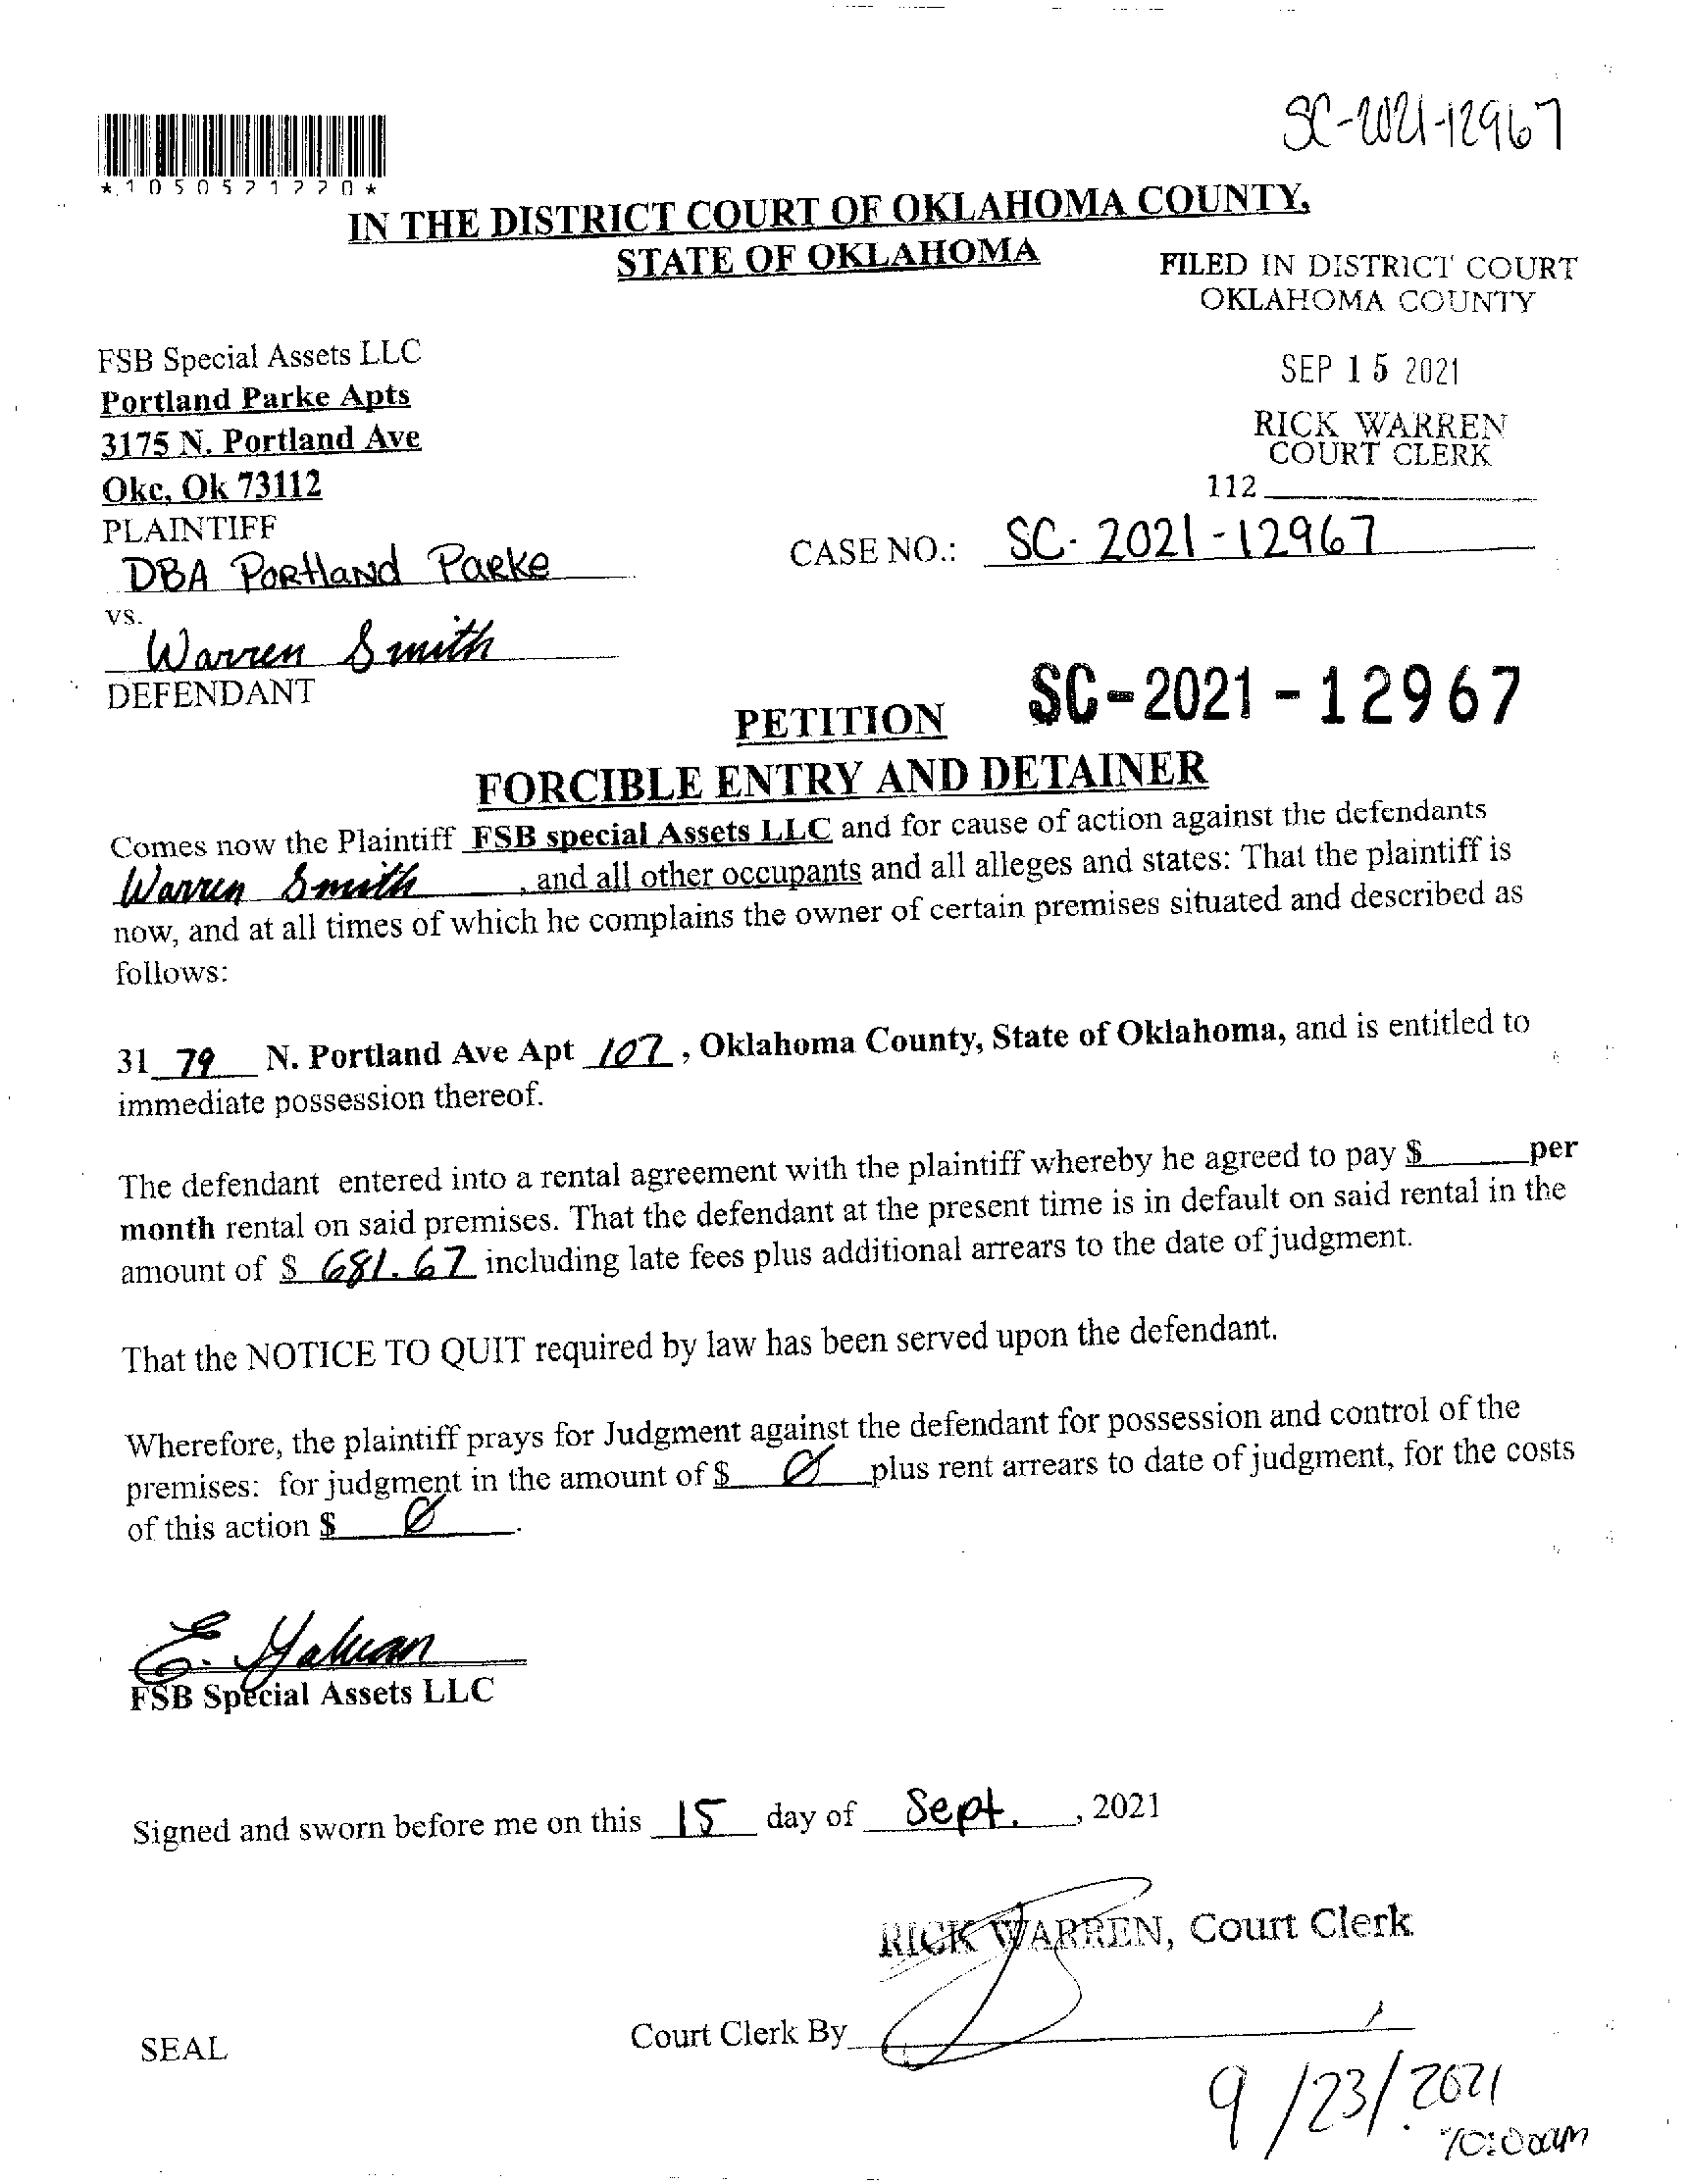 SC-2021-12967
*1050521220*
IN THE DISTRICT COURT OF OKLAHOMA COUNTY,
STATE OF OKLAHOMA
FILED IN DISTRICT COURT
OKLAHOMA COUNTY
FSB Special Assets LLC
SEP 15 2021
Portland Parke Apts
3175 N. Portland Ave
RICK WARREN
COURT CLERK
Okc, Ok 73112
112
PLAINTIFF
DBA Portland Parke
CASE NO.: SC-2021-12967
vs.
Warren Smith
DEFENDANT
SC-2021-12967
PETITION
FORCIBLE ENTRY AND DETAINER
Comes now the Plaintiff FSB special Assets LLC and for cause of action against the defendants
Warren Smith, and all other occupants and all alleges and states: That the plaintiff is
now, and at all times of which he complains the owner of certain premises situated and described as
follows:
31 79 N. Portland Ave Apt 107, Oklahoma County, State of Oklahoma, and is entitled to
immediate possession thereof.
The defendant entered into a rental agreement with the plaintiff whereby he agreed to pay $____per
month rental on said premises. That the defendant at the present time is in default on said rental in the
amount of $ 681.67 including late fees plus additional arrears to the date of judgment.
That the NOTICE TO QUIT required by law has been served upon the defendant.
Wherefore, the plaintiff prays for Judgment against the defendant for possession and control of the
premises: for judgment in the amount of $ Ø plus rent arrears to date of judgment, for the costs
of this action $ Ø.
FSB Special Assets LLC
Signed and sworn before me on this 15 day of Sept., 2021
RICK WARREN, Court Clerk
Court Clerk By
SEAL
9/23/2021
10:00am